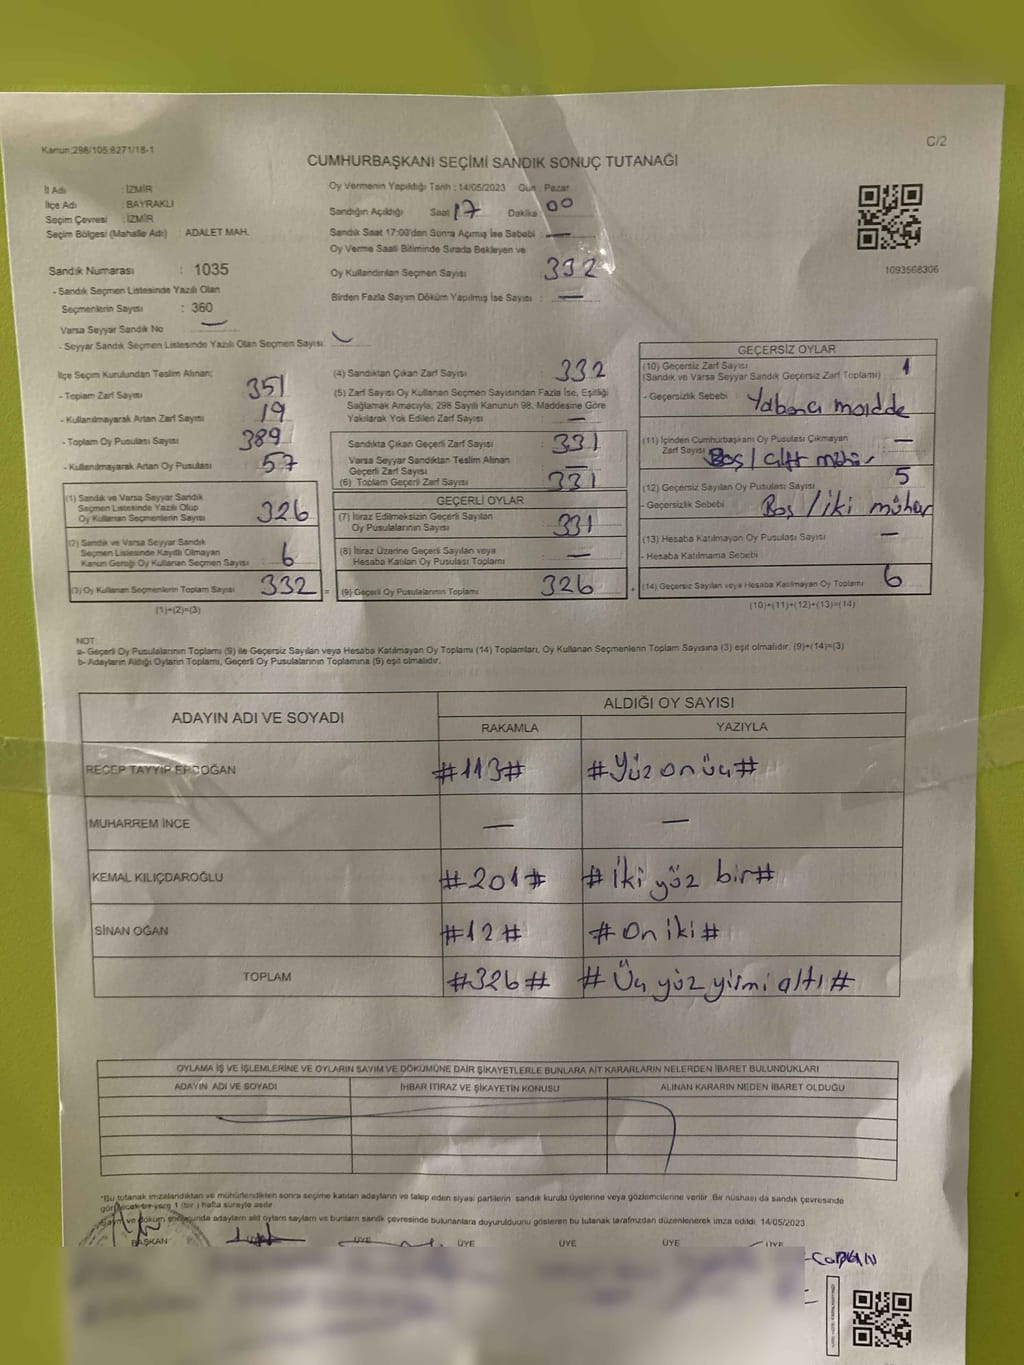 Kanun:298/105:6271/18-1
C/2
CUMHURBAŞKANI SEÇİMİ SANDIK SONUÇ TUTANAĞI
İl Adı : İZMİR
İlçe Adı : BAYRAKLI
Seçim Çevresi : İZMİR
Seçim Bölgesi (Mahalle Adı) ADALET MAH.
Oy Vermenin Yapıldığı Tarih : 14/05/2023 Gün : Pazar
Sandığın Açıldığı Saat 17 Dakika 00
Sandık Saat 17:00'den Sonra Açımış İse Sebebi : —
Oy Verme Saati Bitiminde Sırada Bekleyen ve
Oy Kullandırılan Seçmen Sayısı 332
Birden Fazla Sayım Döküm Yapılmış İse Sayısı : —
1093568306
Sandık Numarası : 1035
- Sandık Seçmen Listesinde Yazılı Olan
Seçmenlerin Sayısı : 360
Varsa Seyyar Sandık No —
- Seyyar Sandık Seçmen Listesinde Yazılı Olan Seçmen Sayısı:
İlçe Seçim Kurulundan Teslim Alınan;
- Toplam Zarf Sayısı 351
- Kullanılmayarak Artan Zarf Sayısı 19
- Toplam Oy Pusulası Sayısı 389
- Kullanılmayarak Artan Oy Pusulası 57
(1) Sandık ve Varsa Seyyar Sandık
Seçmen Listesinde Yazılı Olup
Oy Kullanan Seçmenlerin Sayısı 326
(2) Sandık ve Varsa Seyyar Sandık
Seçmen Listesinde Kayıtlı Olmayan
Kanun Gereği Oy Kullanan Seçmen Sayısı 6
(3) Oy Kullanan Seçmenlerin Toplam Sayısı 332 =
(1)+(2)=(3)
(4) Sandıktan Çıkan Zarf Sayısı : 332
(5) Zarf Sayısı Oy Kullanan Seçmen Sayısından Fazla İse, Eşitliği
Sağlamak Amacıyla; 298 Sayılı Kanunun 98. Maddesine Göre
Yakılarak Yok Edilen Zarf Sayısı : —
Sandıkta Çıkan Geçerli Zarf Sayısı : 331
Varsa Seyyar Sandıktan Teslim Alınan
Geçerli Zarf Sayısı : —
(6) Toplam Geçerli Zarf Sayısı : 331
GEÇERLİ OYLAR
(7) İtiraz Edilmeksizin Geçerli Sayılan
Oy Pusulalarının Sayısı : 331
(8) İtiraz Üzerine Geçerli Sayılan veya
Hesaba Katılan Oy Pusulası Toplamı : —
(9) Geçerli Oy Pusulalarının Toplamı : 326 +
GEÇERSİZ OYLAR
(10) Geçersiz Zarf Sayısı 1
(Sandık ve Varsa Seyyar Sandık Geçersiz Zarf Toplamı) :
- Geçersizlik Sebebi : Yabancı madde
(11) İçinden Cumhurbaşkanı Oy Pusulası Çıkmayan
Zarf Sayısı Boş / çift mühür —
(12) Geçersiz Sayılan Oy Pusulası Sayısı : 5
- Geçersizlik Sebebi : Boş / iki mühür
(13) Hesaba Katılmayan Oy Pusulası Sayısı : —
- Hesaba Katılmama Sebebi
(14) Geçersiz Sayılan veya Hesaba Katılmayan Oy Toplamı : 6
(10)+(11)+(12)+(13)=(14)
NOT
a- Geçerli Oy Pusulalarının Toplamı (9) ile Geçersiz Sayılan veya Hesaba Katılmayan Oy Toplamı (14) Toplamları, Oy Kullanan Seçmenlerin Toplam Sayısına (3) eşit olmalıdır. (9)+(14)=(3)
b- Adayların Aldığı Oyların Toplamı, Geçerli Oy Pusulalarının Toplamına (9) eşit olmalıdır.
ADAYIN ADI VE SOYADI
ALDIĞI OY SAYISI
RAKAMLA YAZIYLA
RECEP TAYYİP ERDOĞAN #113# #Yüz onüç#
MUHARREM İNCE — —
KEMAL KILIÇDAROĞLU #201# #İki yüz bir#
SİNAN OĞAN #12# #On iki#
TOPLAM #326# #Üç yüz yirmi altı#
OYLAMA İŞ VE İŞLEMLERİNE VE OYLARIN SAYIM VE DÖKÜMÜNE DAİR ŞİKAYETLERLE BUNLARA AİT KARARLARIN NELERDEN İBARET BULUNDUKLARI
ADAYIN ADI VE SOYADI İHBAR İTİRAZ VE ŞİKAYETİN KONUSU ALINAN KARARIN NEDEN İBARET OLDUĞU
*Bu tutanak imzalandıktan ve mühürlendikten sonra seçime katılan adayların ve talep eden siyasi partilerin sandık kurulu üyelerine veya gözlemcilerine verilir. Bir nüshası da sandık çevresinde
görülecek bir yere 1 (bir ) hafta süreyle asılır
Sayım ve döküm sonucunda adayların aldığı oyların sayıları ve bunların sandık çevresinde bulunanlara duyurulduunu gösteren bu tutanak tarafımızdan düzenlenerek imza edildi. 14/05/2023
BAŞKAN ÜYE ÜYE ÜYE ÜYE ÜYE